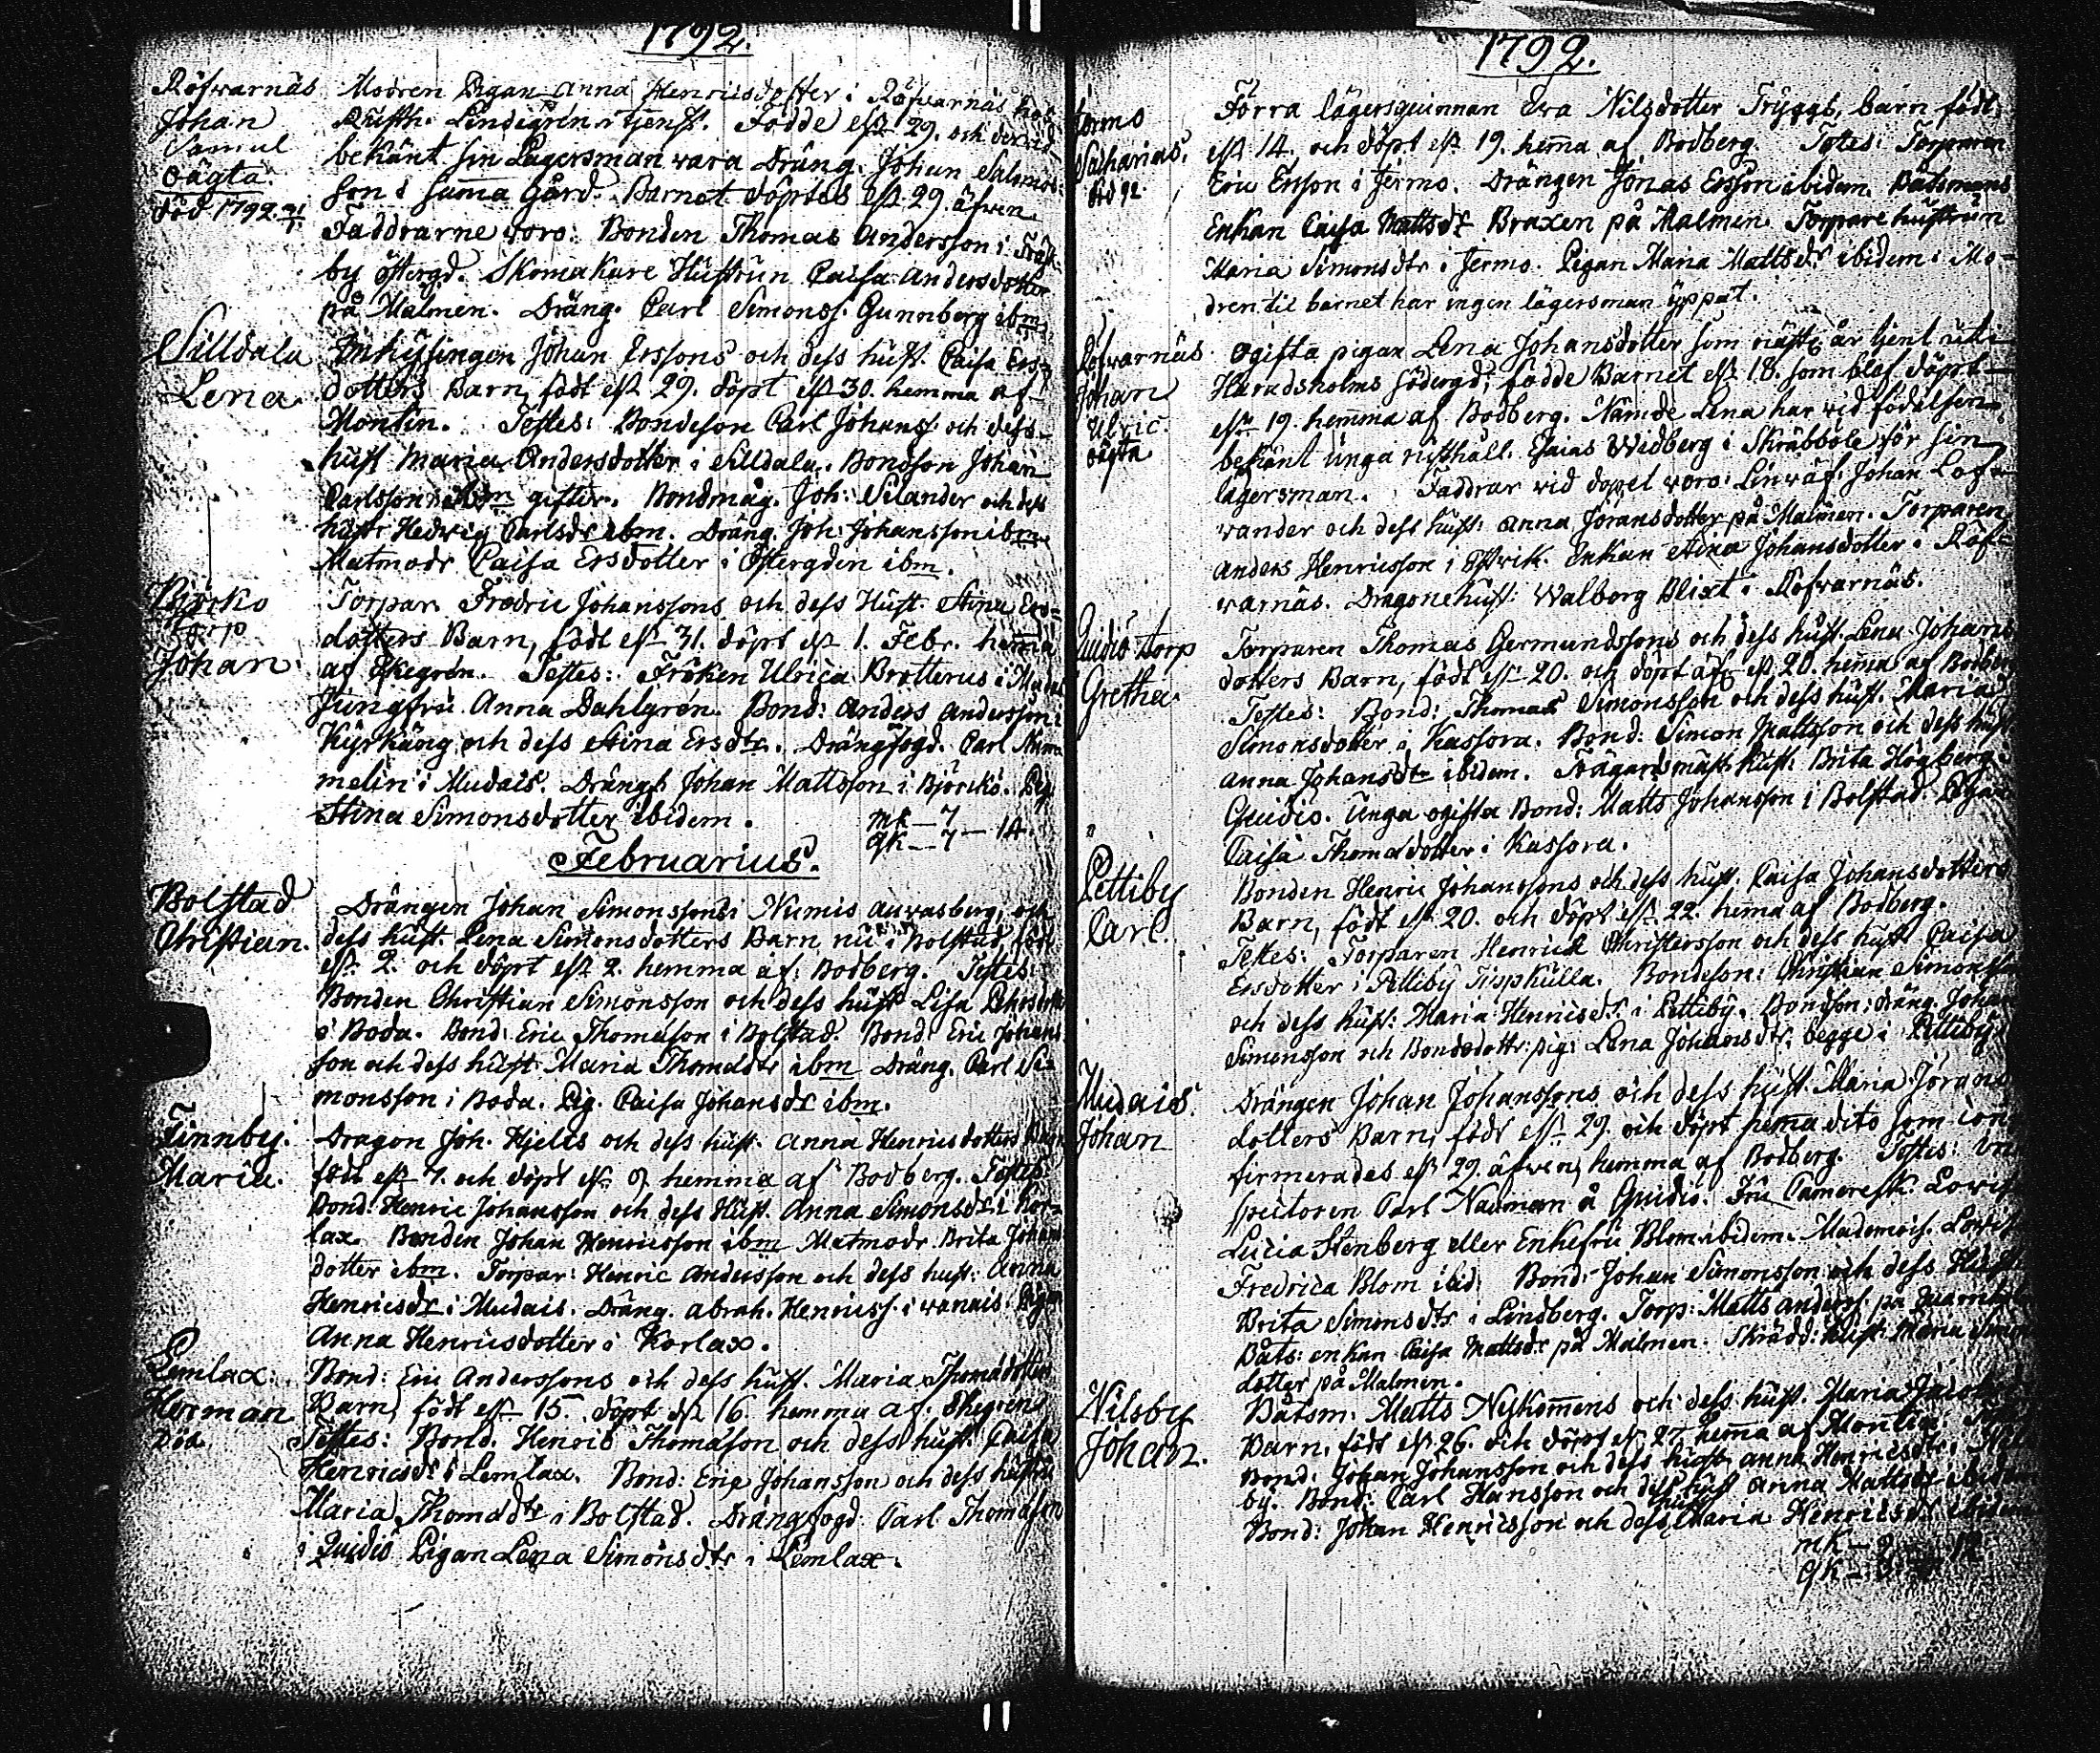 1792.
Röfvarnäs
Johan
Samul
oägta.
död 1792
Modren Pigan Anna Henricsdotter i Röfvarnäs hos
Rusth. Lindegrén i tjenst. Födde est 29. och dervid
bekänt sin Lägersman vara Dräng. Johan Salomos-
son i samma Gård. Barnet döptes est 29. äfven
Faddrarne voro: Bonden Thomas Andersson i
by östergd. Skomakare Hustrun Caisa Andersdotter
på Malmen. Dräng. Carl Simonss. Gunnberg ibm
Silldala
Lena
Inhysingen Johan Erssons och dess hust. Caisa Ers-
dotters Barn, födt est 29. döpt est 30. hemma af
Montin. Testes: Bondeson Carl Johanss. och dess
hust Maria Andersdotter i Silldala. Bondson Johan
Carlsson ibm gifter. Bondmåg. Joh: Silander och dess
hustr Hedvig Carlsdr ibm. Dräng. Joh: Johansson ibm
Matmodr Caisa Ersdotter i Östergden ibm.
Björkö
torp
Johan
Torpar. Fredric Johanssons och dess Hust. Stina Ers-
dotters Barn, födt est 31. döpt est 1. Febr. hemma
af Ekegrén. Testes: Fröken Ulrica Brotterus i
Jungfru Anna Dahlgrén. Bond: Anders Andersson i
Kyrkäng och dess Stina Ersdtr. Drängfogd. Carl Num
melin i Mudais. Drängs Johan Mattsson i Björkö. Pig.
Stina Simonsdotter ibidem.
mk — 7
qk — 7 — 14.
Februarius.
Bolstad
Christian.
Drängen Johan Simonssons i Numis auvasberg, och
dess hust. Lena Simonsdotters Barn nu i Bolstad, födt
est 2. och döpt est 2. hemma af: Bodberg. Testes:
Bonden Christian Simonsson och dess hust Lisa
i Boda. Bond: Eric Thomasson i Bolstad. Bond: Eric Johans-
son och dess hust Maria Thomadtr ibm Dräng. Carl Si-
monsson i Boda. Pig. Caisa Johansdr ibm.
Finnby.
Maria.
Dragon Joh. Hjelts och dess hust. Anna Henricsdotters Barn
födt est 7. och döpt est 9 hemma af Bodberg. Testes
Bond. Henric Johansson och dess Hust. Anna Simonsdr i Kor-
lax. Bonden Johan Henricsson ibm Matmodr. Brita Johans
dotter ibm. Torpar: Henric Andersson och dess hust: Anna
Henricsdr i Mudais. Dräng. Abrah. Henricss. i Vanais. Pigan
Anna Henricsdotter i Korlax.
Lemlax.
Herman
död.
Bond: Eric Anderssons och dess hust. Maria Thomadotters
Barn, födt est 15. döpt est 16. hemma af: Ekegrén
Testes: Bond. Henric Thomasson och dess hust: Caisa
Henricsdr i Lemlax. Bond: Eric Johansson och dess hustru
Maria Thomadtr i Bolstad. Drängfogd. Carl Thomasson
i Qvidiö Pigan Lena Simonsdtr i Lemlax.
1792.
Jermo
Zacharias.
död 92
Förra lägersquinnan Eva Nilsdotter Tryggs, barn födt
est 14. och döpt est 19. hemma af Bodberg. Testes: Torparen
Eric Ersson i Jermo. Drängen Jonas Ersson ibidem. Båtsmans
Enkan Caisa Mattsdr Braxen på Malmen. Torpare hustrun
Maria Simonsdtr i Jermo. Pigan Maria Mattsdr ibidem: Mo-
dren til barnet har ingen lägersman uppgt.
Röfvarnäs
Johan
Ulric.
oägta
Ogifta pigan Lena Johansdotter som nästl. år tjent uti
Haradsholms södergd, födde Barnet est 18. som blef döpt
est 19. hemma af Bodberg. Nämde Lena har vid födelsen
bekänt unga rusthåll. Esaias Widberg i Skräbböle för sin
lägersman. Faddrar vid dopet voro: Linväf. Johan Lof-
vander och dess hust: Anna Joransdotter på Malmen. Torparen
Anders Henricsson i Estvik. Enkan Stina Johansdotter i Röf-
varnäs. Dragonehust: Walborg Blixt i Röfvarnäs.
Qvidiö torp
Gretha
Torparen Thomas Germundssons och dess hust. Lena Johans
dotters Barn, födt est 20. och döpt äfv est 20. hemma af Bodberg
Testes: Bond: Thomas Simonsson och dess hust. Maria
Simonsdotter i Kassora. Bond: Simon Mattsson och dess hust
Anna Johansdtr ibidem. Trägårdsmäst. hust. Brita Högberg i
Qvidiö. Unga ogifta Bond: Matts Johansson i Bolstad. Pigan
Caisa Thomadotter i Kassora.
Pettiby
Carl.
Bonden Henric Johanssons och dess hust. Caisa Johansdotters
Barn, födt est 20. och döpt est 22. hemma af Bodberg.
Testes: Torparen Henrick Christersson och dess hust Caisa
Ersdotter i Pettiby Tippkulla. Bondeson: Christian Simonsson
och dess hust: Maria Henricsdr. i Pettiby. Bondson: dräng. Johan
Simonsson och Bondedottr: pig: Lena Johansdtr. begge i Pettiby
Mudais.
Johan
Drängen Johan Johanssons och dess hust. Maria Jorans
dotters Barn, födt est 29. och döpt hemma dito som con
firmerades est 29. äfven, hemma af Bodberg. Testes: In
spectoren Carl Nauman å Qvidiö. Fru Camererisk. Lovis
Lucia Stenberg eller Enkefru Blom ibidem. Mademois. Lovis
Fredrica Blom ibid: Bond: Johan Simonsson och dess Hust
Brita Simonsdtr i Lindberg. Torp: Matts Anderss. på
Båts: enkan Caisa Mattsdr på Malmen. Skrädd: hust: Maria Simons
dotter på Malmen.
Nilsby
Johan.
Båtsm: Matts Nykomens och dess hust. Maria
Barn, födt est 26. och döpt est 27. hemma af Montin:
Bond: Johan Johansson och dess hust Anna Henricsdtr i Nils
by. Bond: Carl Hansson och dess hust Anna Mattsdr ibidem
Bond: Johan Henricsson och dess hust Maria Henricsdr ibidem
mk — 9
qk — 3 — 12.